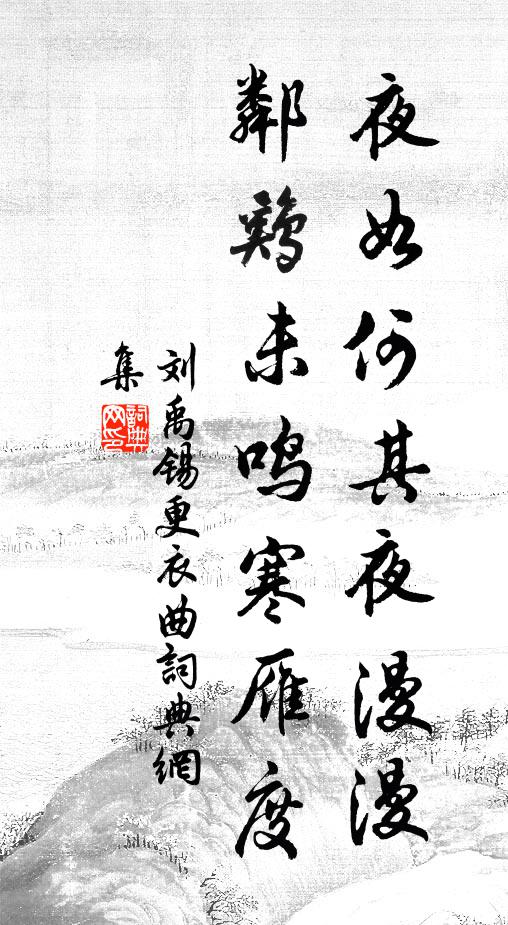 夜如何其夜漫漫
鄰鷄未鳴寒雁度
刘禹锡更衣曲詞典網
集
詞典
网印